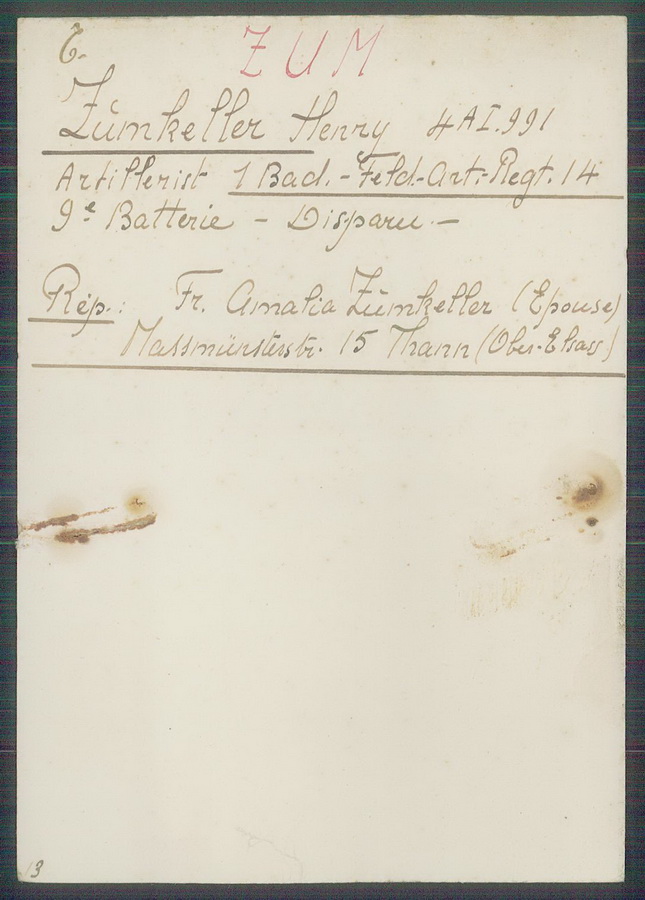 ZUM
Zùmkeller Henry 4 AI.991
Artillerist 1 Bad.-Feld-Art.-Regt. 14
9e Batterie - Disparu -
Rép.: Fr. Amalia Zùmkeller (Epouse)
Massmünsterstr. 15 Thann (Ober-Elsass)
13